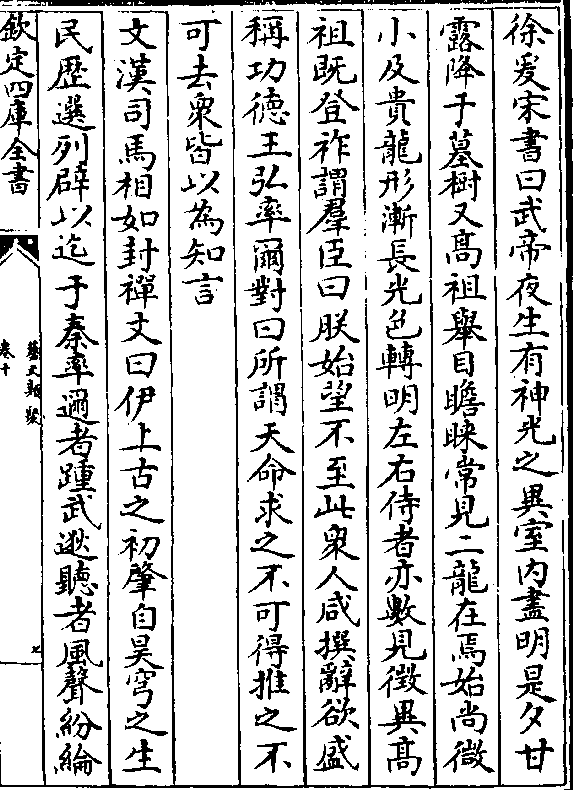 徐爰宋書曰武帝夜生有神光之異室内盡明是夕甘
露降于墓樹又髙祖舉目瞻睞常見二龍在焉始尚微
小及貴龍形漸長光色轉明左右侍者亦數見徴異髙
祖既登祚謂羣臣曰朕始望不至此衆人咸撰辭欲盛
稱功徳王弘率爾對曰所謂天命求之不可得推之不
可去衆皆以為知言
文漢司馬相如封禪文曰伊上古之初肇自昊穹之生
民歴選列辟以迄于秦率邇者踵武逖聽者風聲紛綸
欽定四庫全書
藝文類聚
卷十